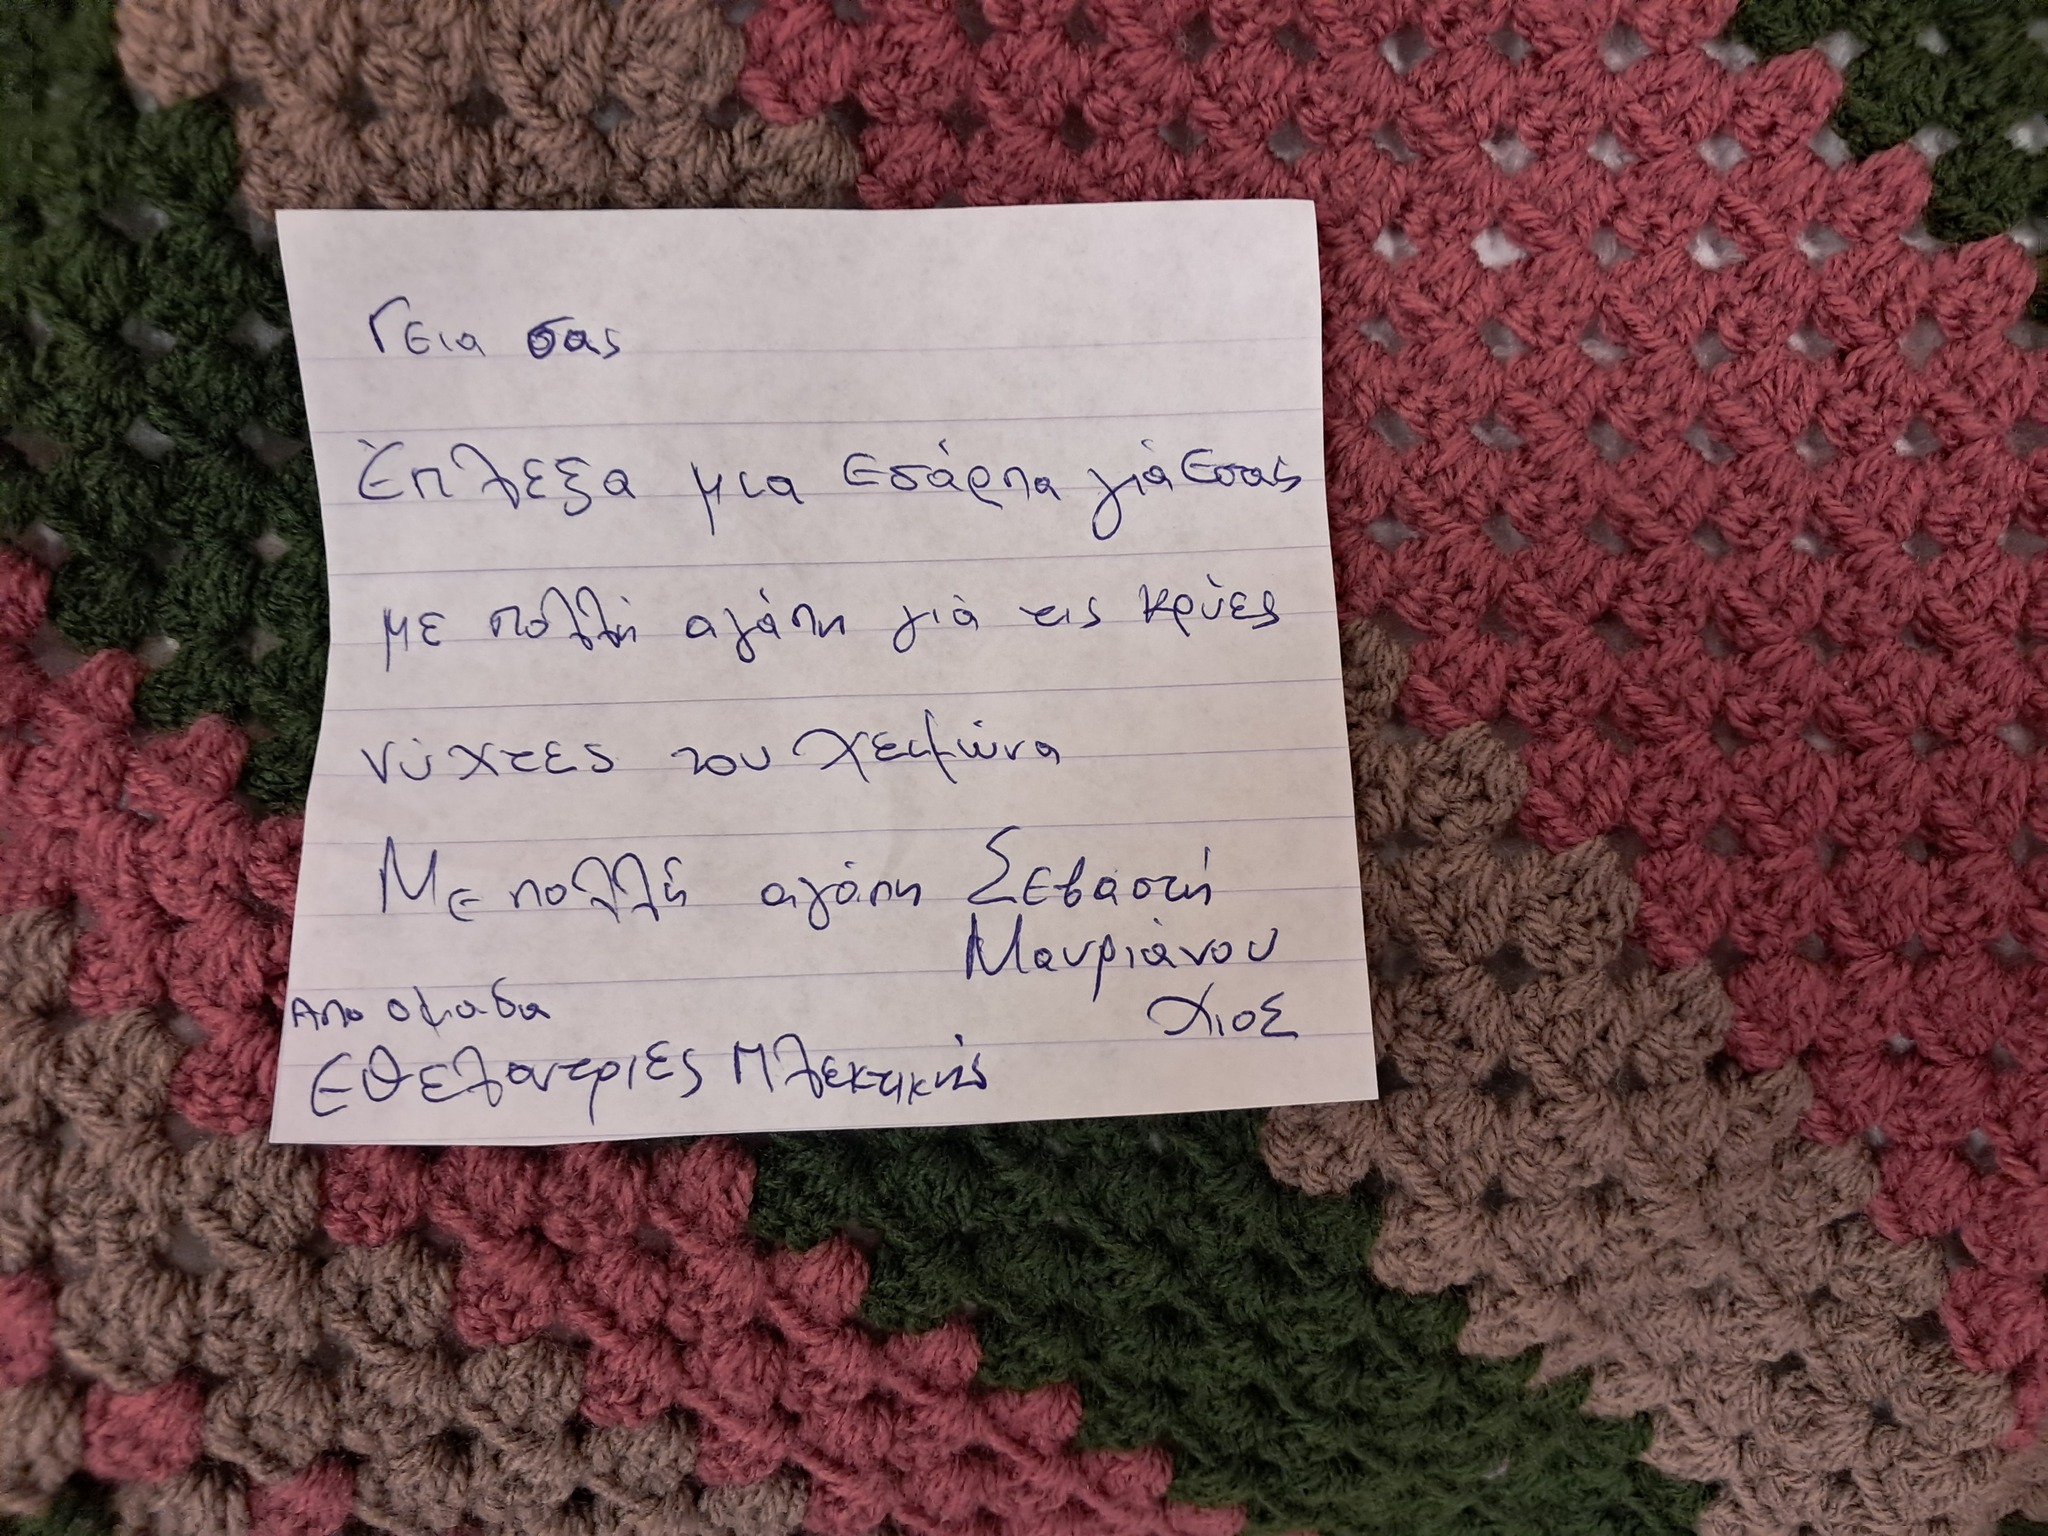 Γεια σας
Έπλεξα μια εσάρπα γιά εσάς
με πολλή αγάπη γιά τις κρύες
νύχτες του χειμώνα
Με πολλή αγάπη Σεβαστή
Μαυριάνου
Χιος
Απο ομαδα
Εθελοντριες Πλεκτικής